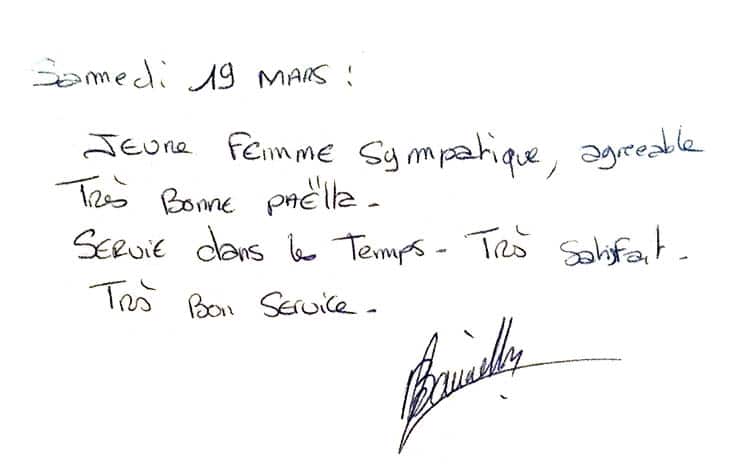 Samedi 19 MARS :
JEUNE FEMME Sympatique, agreeable
Très BONNE PAËlla -
SERVIE dans le Temps - Très Satisfait -
Très Bon Service -